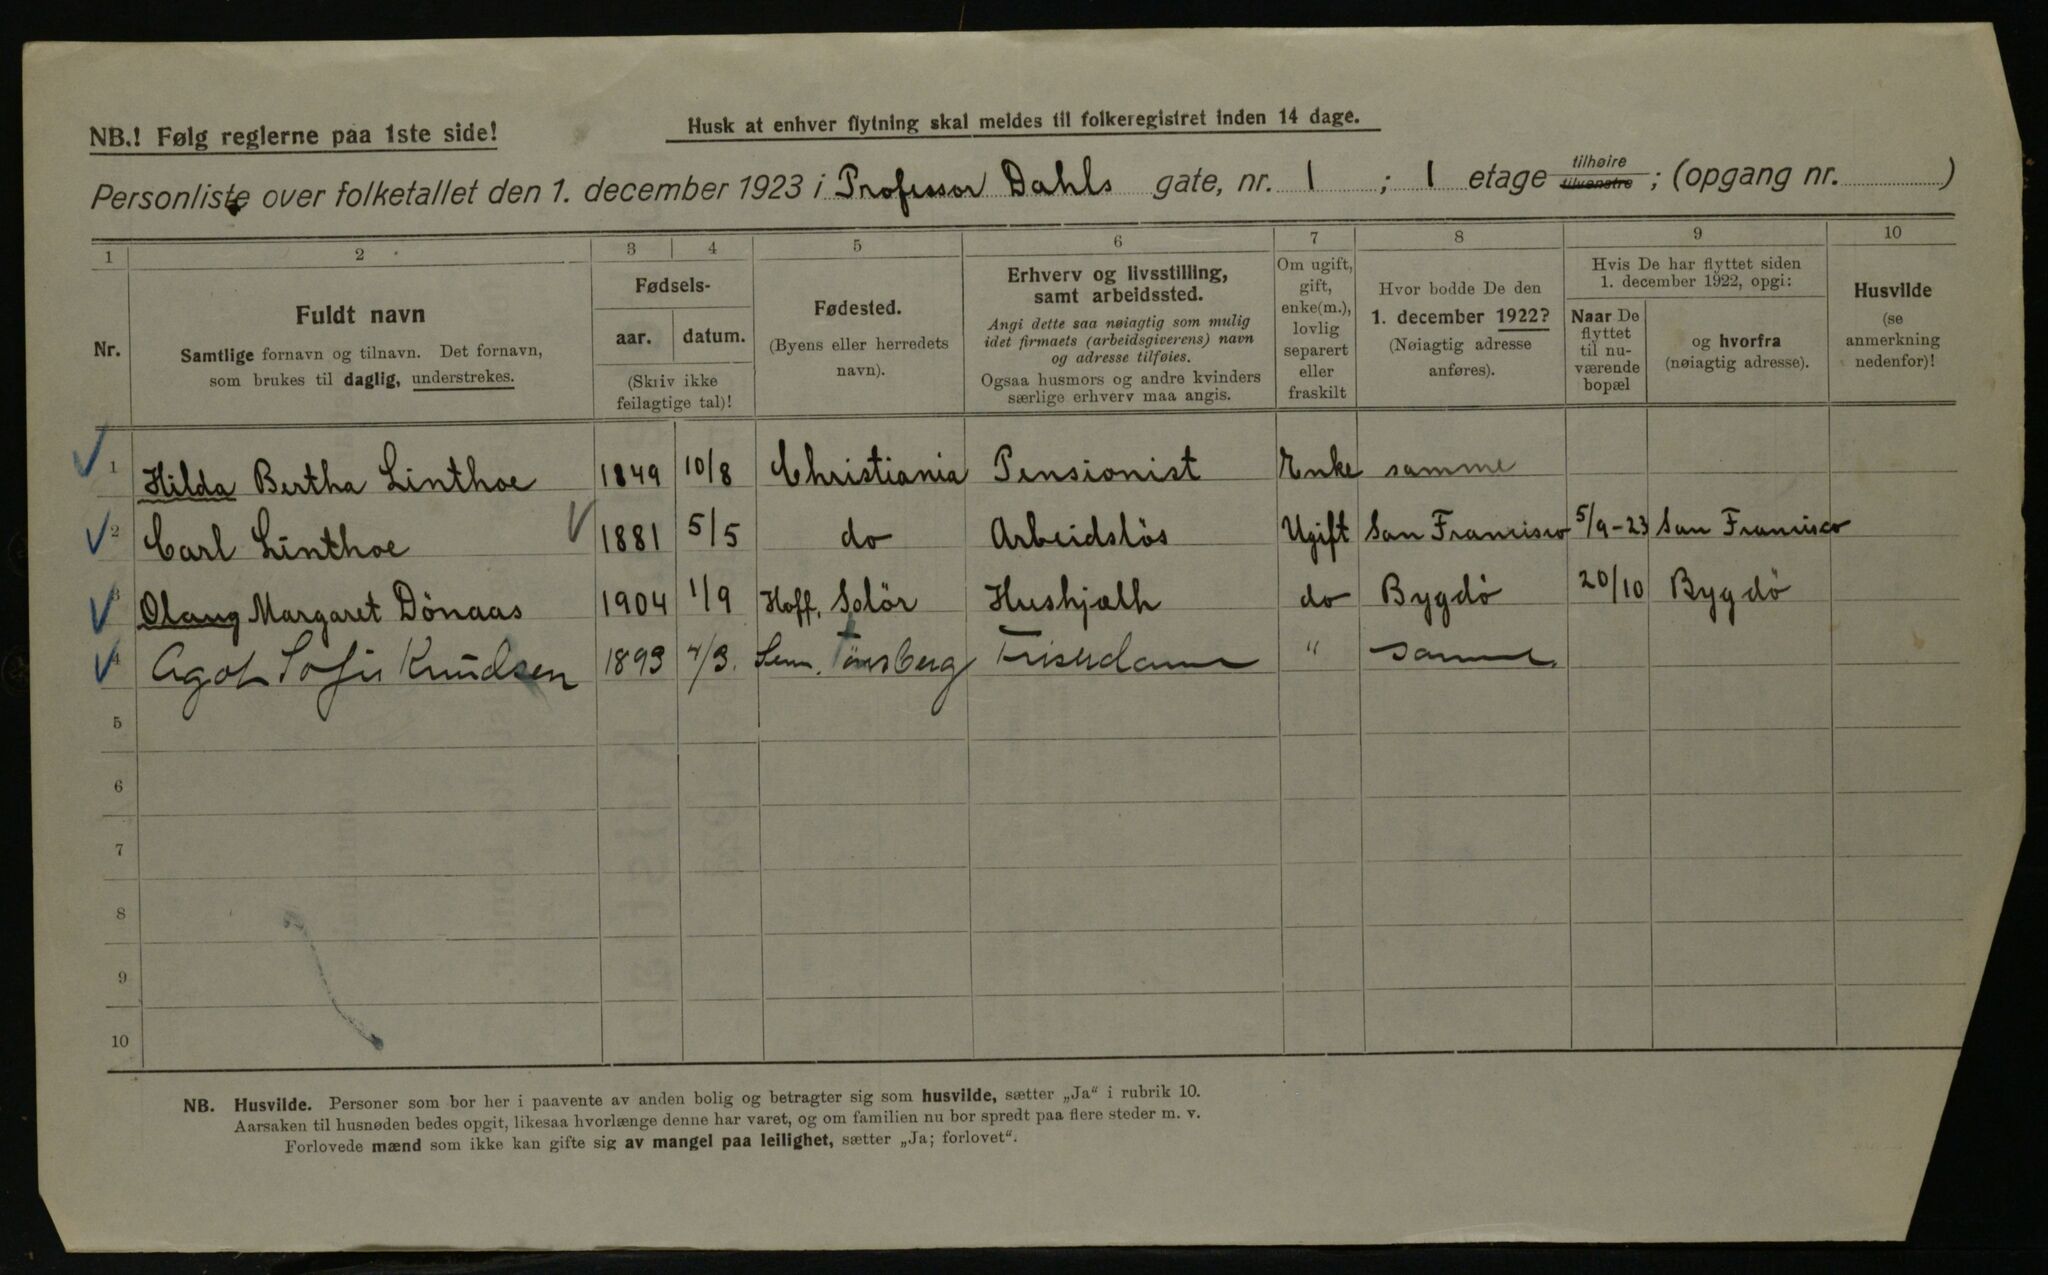 NB.! Følg reglerne paa 1ste side!
Husk at enhver flytning skal meldes til folkeregistret inden 14 dage.
Personliste over folketallet den 1. december 1923 i Professor Dahls gate, nr. 1 ; 1 etage tilhøire tilvenstre ; (opgang nr. )
1 2 3 4 5 6 7 8 9 10
Nr.
Fuldt navn
Samtlige fornavn og tilnavn. Det fornavn,
som brukes til daglig, understrekes.
Fødsels-
aar. datum.
(Skriv ikke
feilagtige tal)!
Fødested.
(Byens eller herredets
navn).
Erhverv og livsstilling,
samt arbeidssted.
Angi dette saa nøiagtig som mulig
idet firmaets (arbeidsgiverens) navn
og adresse tilføies.
Ogsaa husmors og andre kvinders
særlige erhverv maa angis.
Om ugift,
gift,
enke(m.),
lovlig
separert
eller
fraskilt
Hvor bodde De den
1. december 1922?
(Nøiagtig adresse
anføres).
Hvis De har flyttet siden
1. december 1922, opgi:
Naar De
flyttet
til nu-
værende
bopæl
og hvorfra
(nøiagtig adresse).
Husvilde
(se
anmerkning
nedenfor)!
1 Hilda Bertha Linthoe 1849 10/8 Christiania Pensionist Enke samme
2 Carl Linthoe 1881 5/5 do Arbeidslös Ugift San Francisco 5/9-23 San Francisco
3 Olaug Margaret Dönaas 1904 1/9 Hoff, Solör Hushjælh do Bygdö 20/10 Bygdö
4 Agot Sofie Knudsen 1893 /3. Sem. Tønsberg Friserdame " samme
5
6
7
8
9
10
NB. Husvilde. Personer som bor her i paavente av anden bolig og betragter sig som husvilde, sætter „Ja“ i rubrik 10.
Aarsaken til husnøden bedes opgit, likesaa hvorlænge denne har varet, og om familien nu bor spredt paa flere steder m. v.
Forlovede mænd som ikke kan gifte sig av mangel paa leilighet, sætter „Ja; forlovet“.